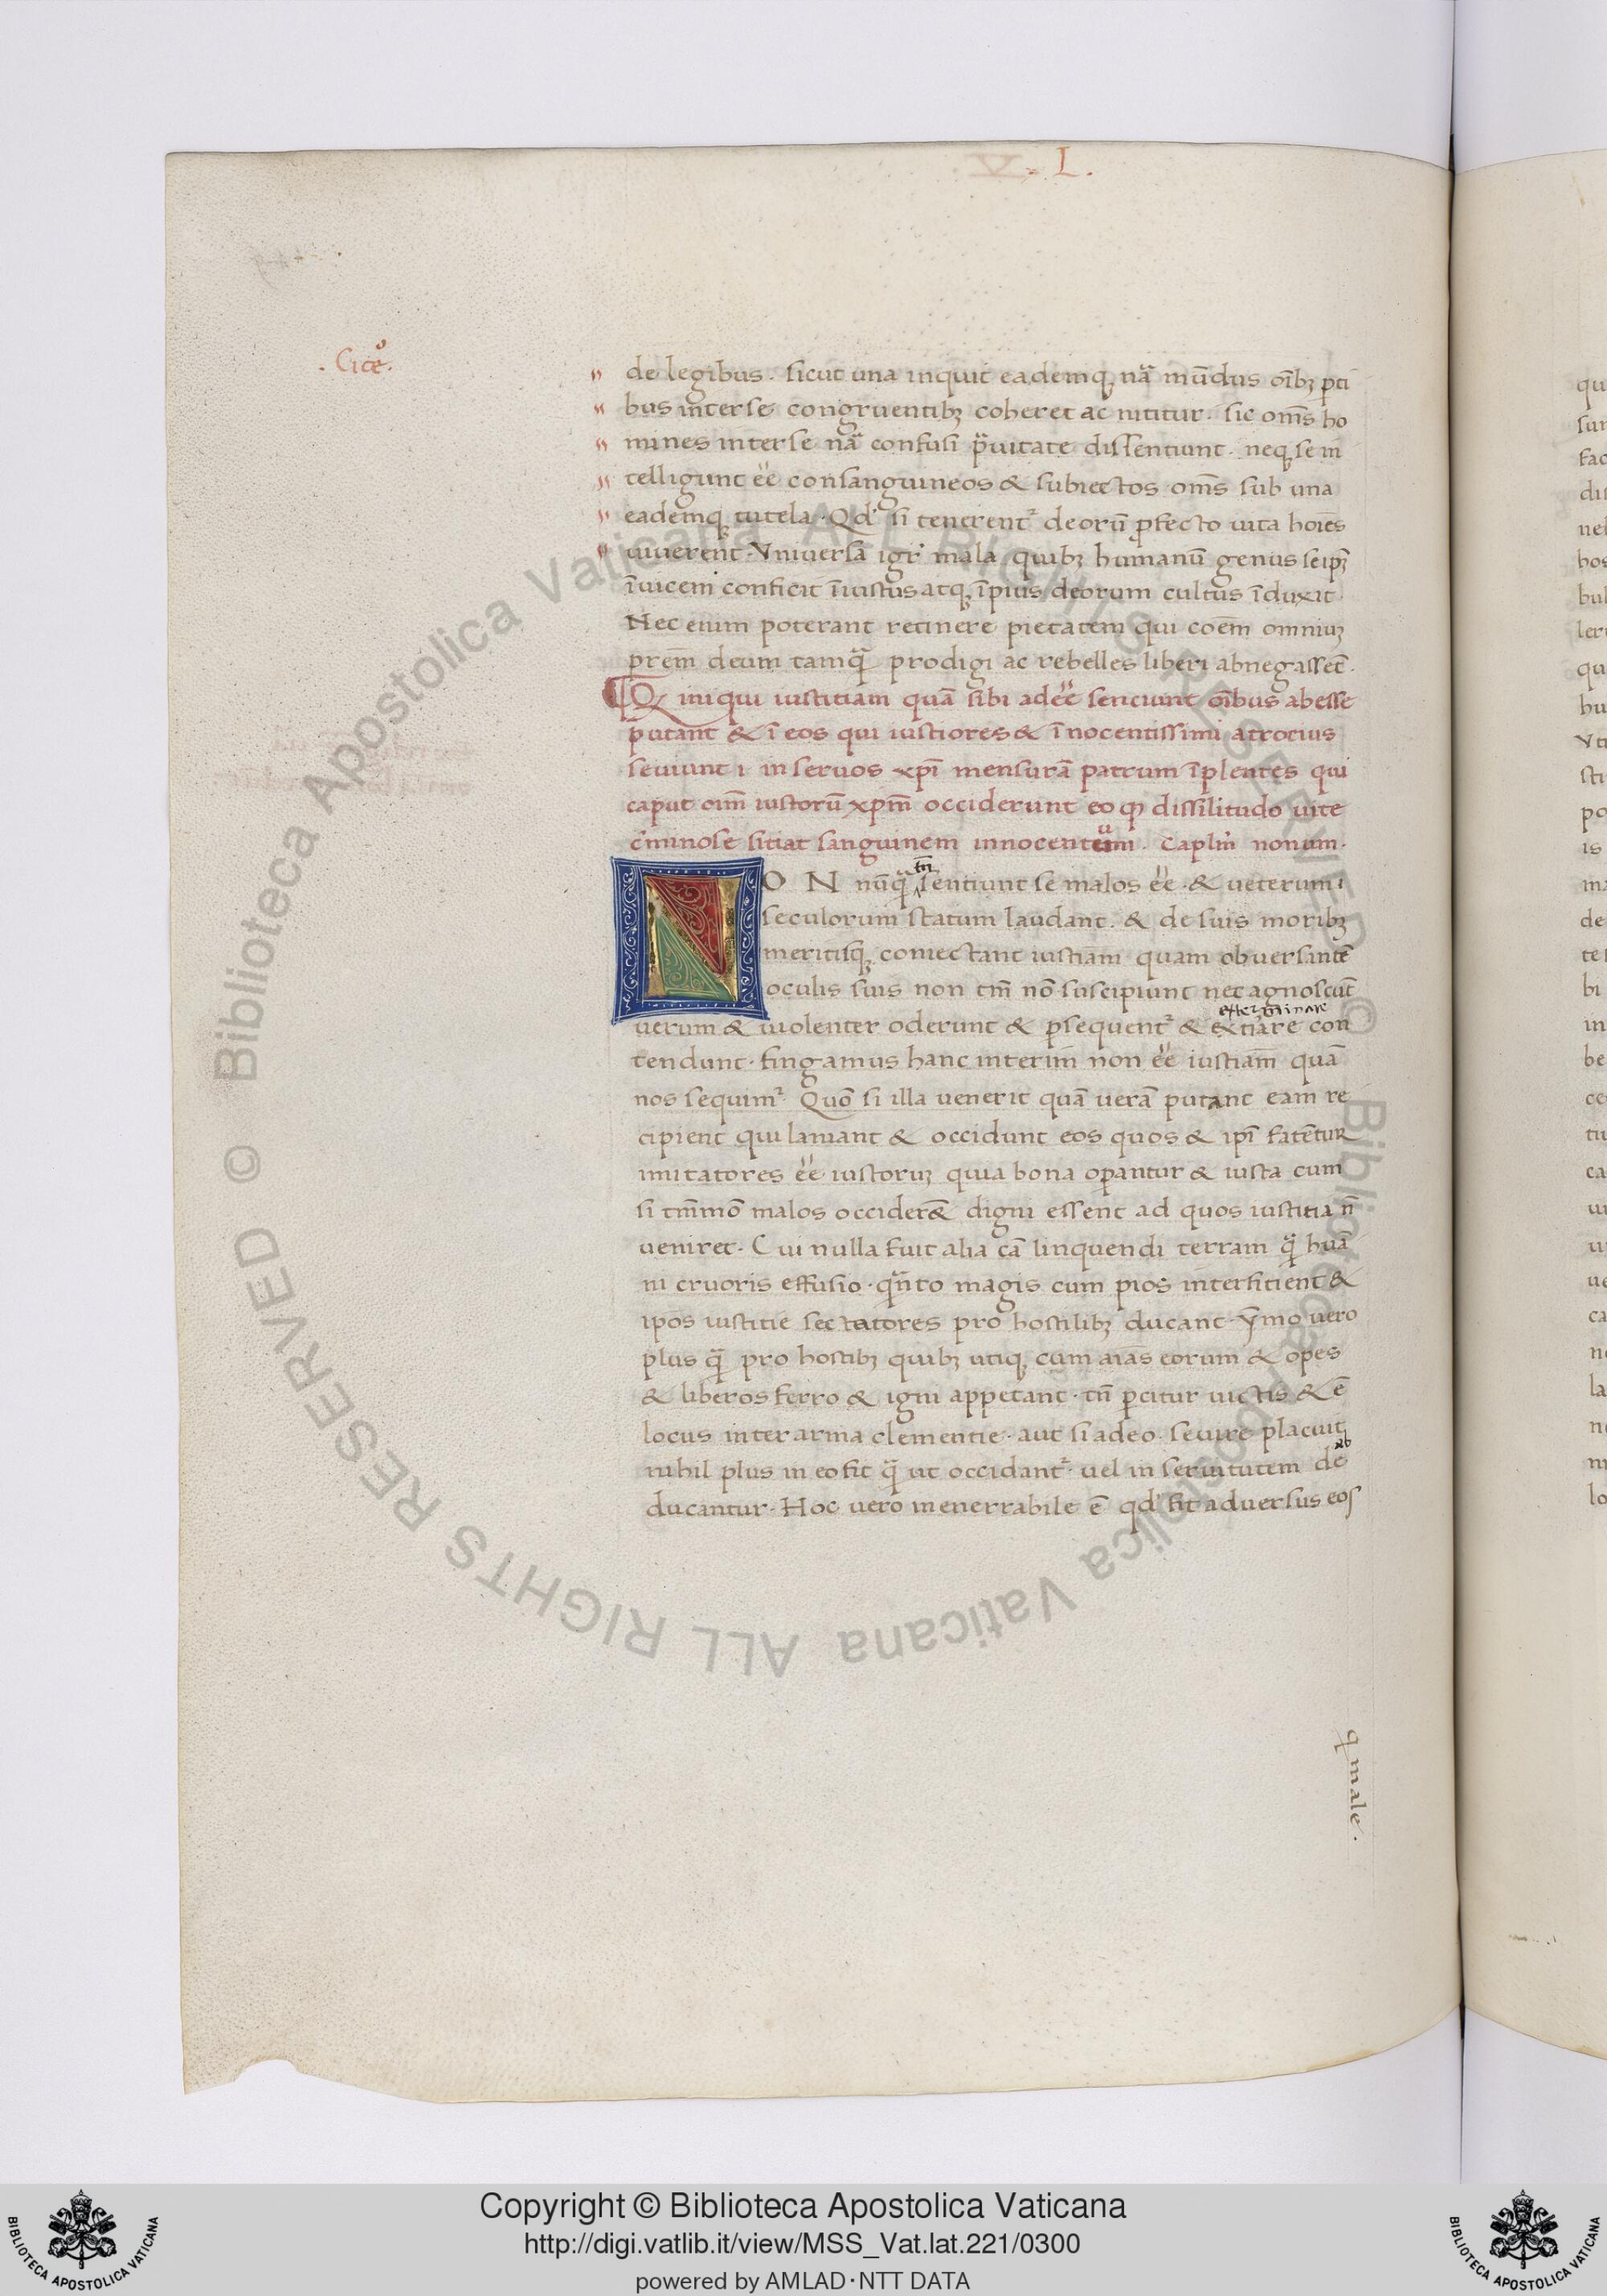 V. L.
. Cicėº.
de legibus. sicut una inquit eademq; nā mūdus oīb; pti
bus inter se congruentib; coheret ac nititur. sic om̄s ho
mines inter se nā confusi p̄uitate dissentiunt. neq; se in
telligunt ēē consanguineos & subiectos om̄s sub una
eademq; tutela. Qd' si tenerent² deorū ꝓfecto uita hoīes
uiuerent. Vniuersa igr̄ mala quib; humanū genus seip̄
īuicem conficit īiustus atq; īpius deorum cultus īduxit
Nec enim poterant retinere pietatem qui coēm omniuꝫ
prēm deum tamq̄ prodigi ac rebelles liberi abnegassēt.
¶ Q iniqui iustitiam quā sibi adēē senciunt oībus abesse
putant & ī eos qui iustiores & īnocentissimi atrocius
seuiunt i in seruos xpī mensurā patrum īplentes qui
caput oīm iustorū xpm̄ occiderunt eo qꝫ dissilitudo uite
c̍minose sitiat sanguinem innocentium. Caplm̄ nonum.
NON nūq̄ tn̄ sentiunt se malos ēē. & ueterum
seculorum statum laudant. & de suis morib;
meritisq; coniectant iustiam quam obuersantē
oculis suis non tm̄ nō suscipiunt nec agnoscūt
exterminare
uerum & uiolenter oderunt & ꝑsequent² & extiare con
tendunt. fingamus hanc interim non ēē iustiam quā
nos sequim². Quō si illa uenerit quā uerā putant eam re
cipient qui laniant & occidunt eos quos & ip̄i fatētur
imitatores ēē iustoruꝫ quia bona oꝑantur & iusta cum
si tm̄mō malos occiderēt digni essent ad quos iustitia n̄
ueniret. Cui nulla fuit alia cā linquendi terram q̄ huā
ni cruoris effusio. q̄nto magis cum pios interficient &
ip̄os iustitie sectatores pro hostilib; ducant. ymo uero
plus q̄ pro hostib; quib; utiq; cum aīas eorum & opes
& liberos ferro & igni appetant. tn̄ ꝑcitur uictis & ē
locus inter arma clementie. aut si adeo seuire placuit
nihil plus in eo fit q̄ ut occidant². uel in seruitutem de ab
ducantur. Hoc uero inenerrabile ē qd' fit aduersus eos
q male.
Copyright © Biblioteca Apostolica Vaticana
http://digi.vatlib.it/view/MSS_Vat.lat.221/0300
powered by AMLAD·NTT DATA